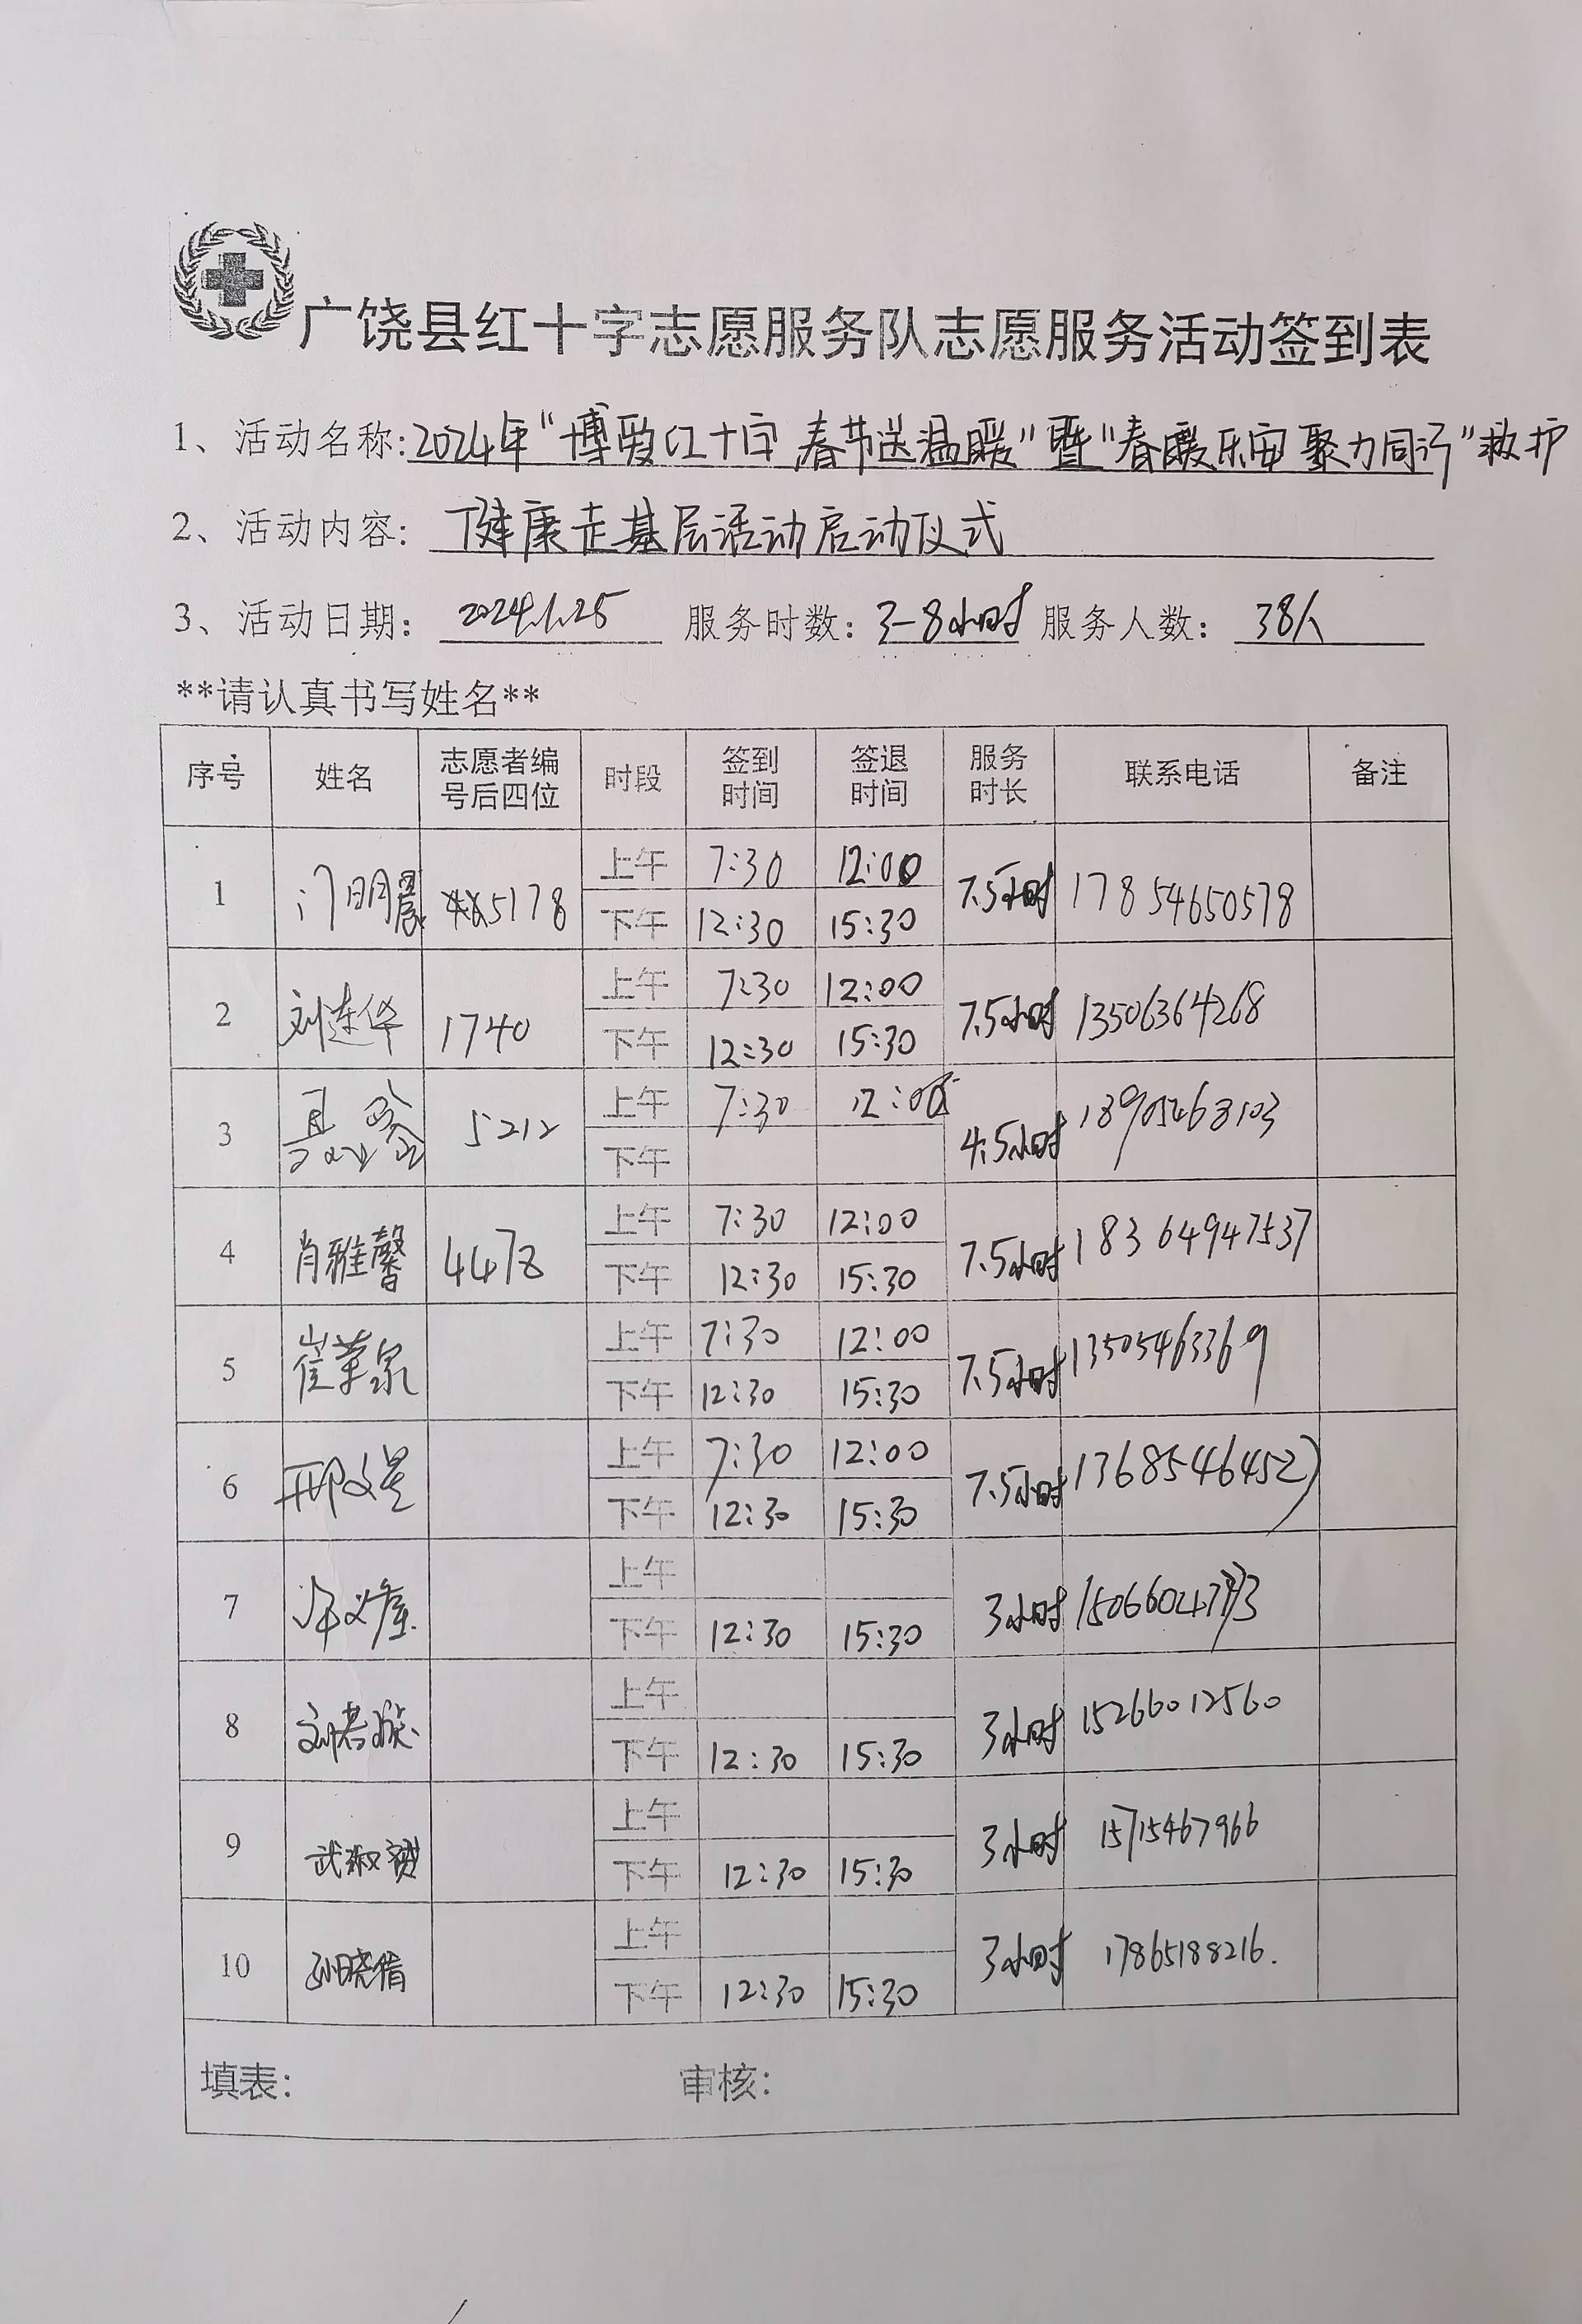 广饶县红十字志愿服务队志愿服务活动签到表
1、活动名称:2024年"博爱红十字,春节送温暖"暨"春暖乐安 聚力同行"救护
2、活动内容: 健康走基层活动启动仪式
3、活动日期: 2024.1.25 服务时数: 3-8小时 服务人数: 38人
**请认真书写姓名**
序号 姓名 志愿者编号后四位 时段 签到时间 签退时间 服务时长 联系电话 备注
1 门明晨 5178 上午 7:30 12:00 7.5小时 17854650578
下午 12:30 15:30
2 刘连华 1740 上午 7:30 12:00 7.5小时 13506364268
下午 12:30 15:30
3 5212 上午 7:30 12:00 4.5小时 18905468103
下午
4 肖雅馨 4478 上午 7:30 12:00 7.5小时 18364947537
下午 12:30 15:30
5 崔荣泉 上午 7:30 12:00 7.5小时 13505463369
下午 12:30 15:30
6 邢文星 上午 7:30 12:00 7.5小时 13685464527
下午 12:30 15:30
7 上午 3小时
下午 12:30 15:30
8 上午 3小时 15266012560
下午 12:30 15:30
9 武淑贤 上午 3小时 15715467966
下午 12:30 15:30
10 孙晓倩 上午 3小时 17865188216.
下午 12:30 15:30
填表: 审核: